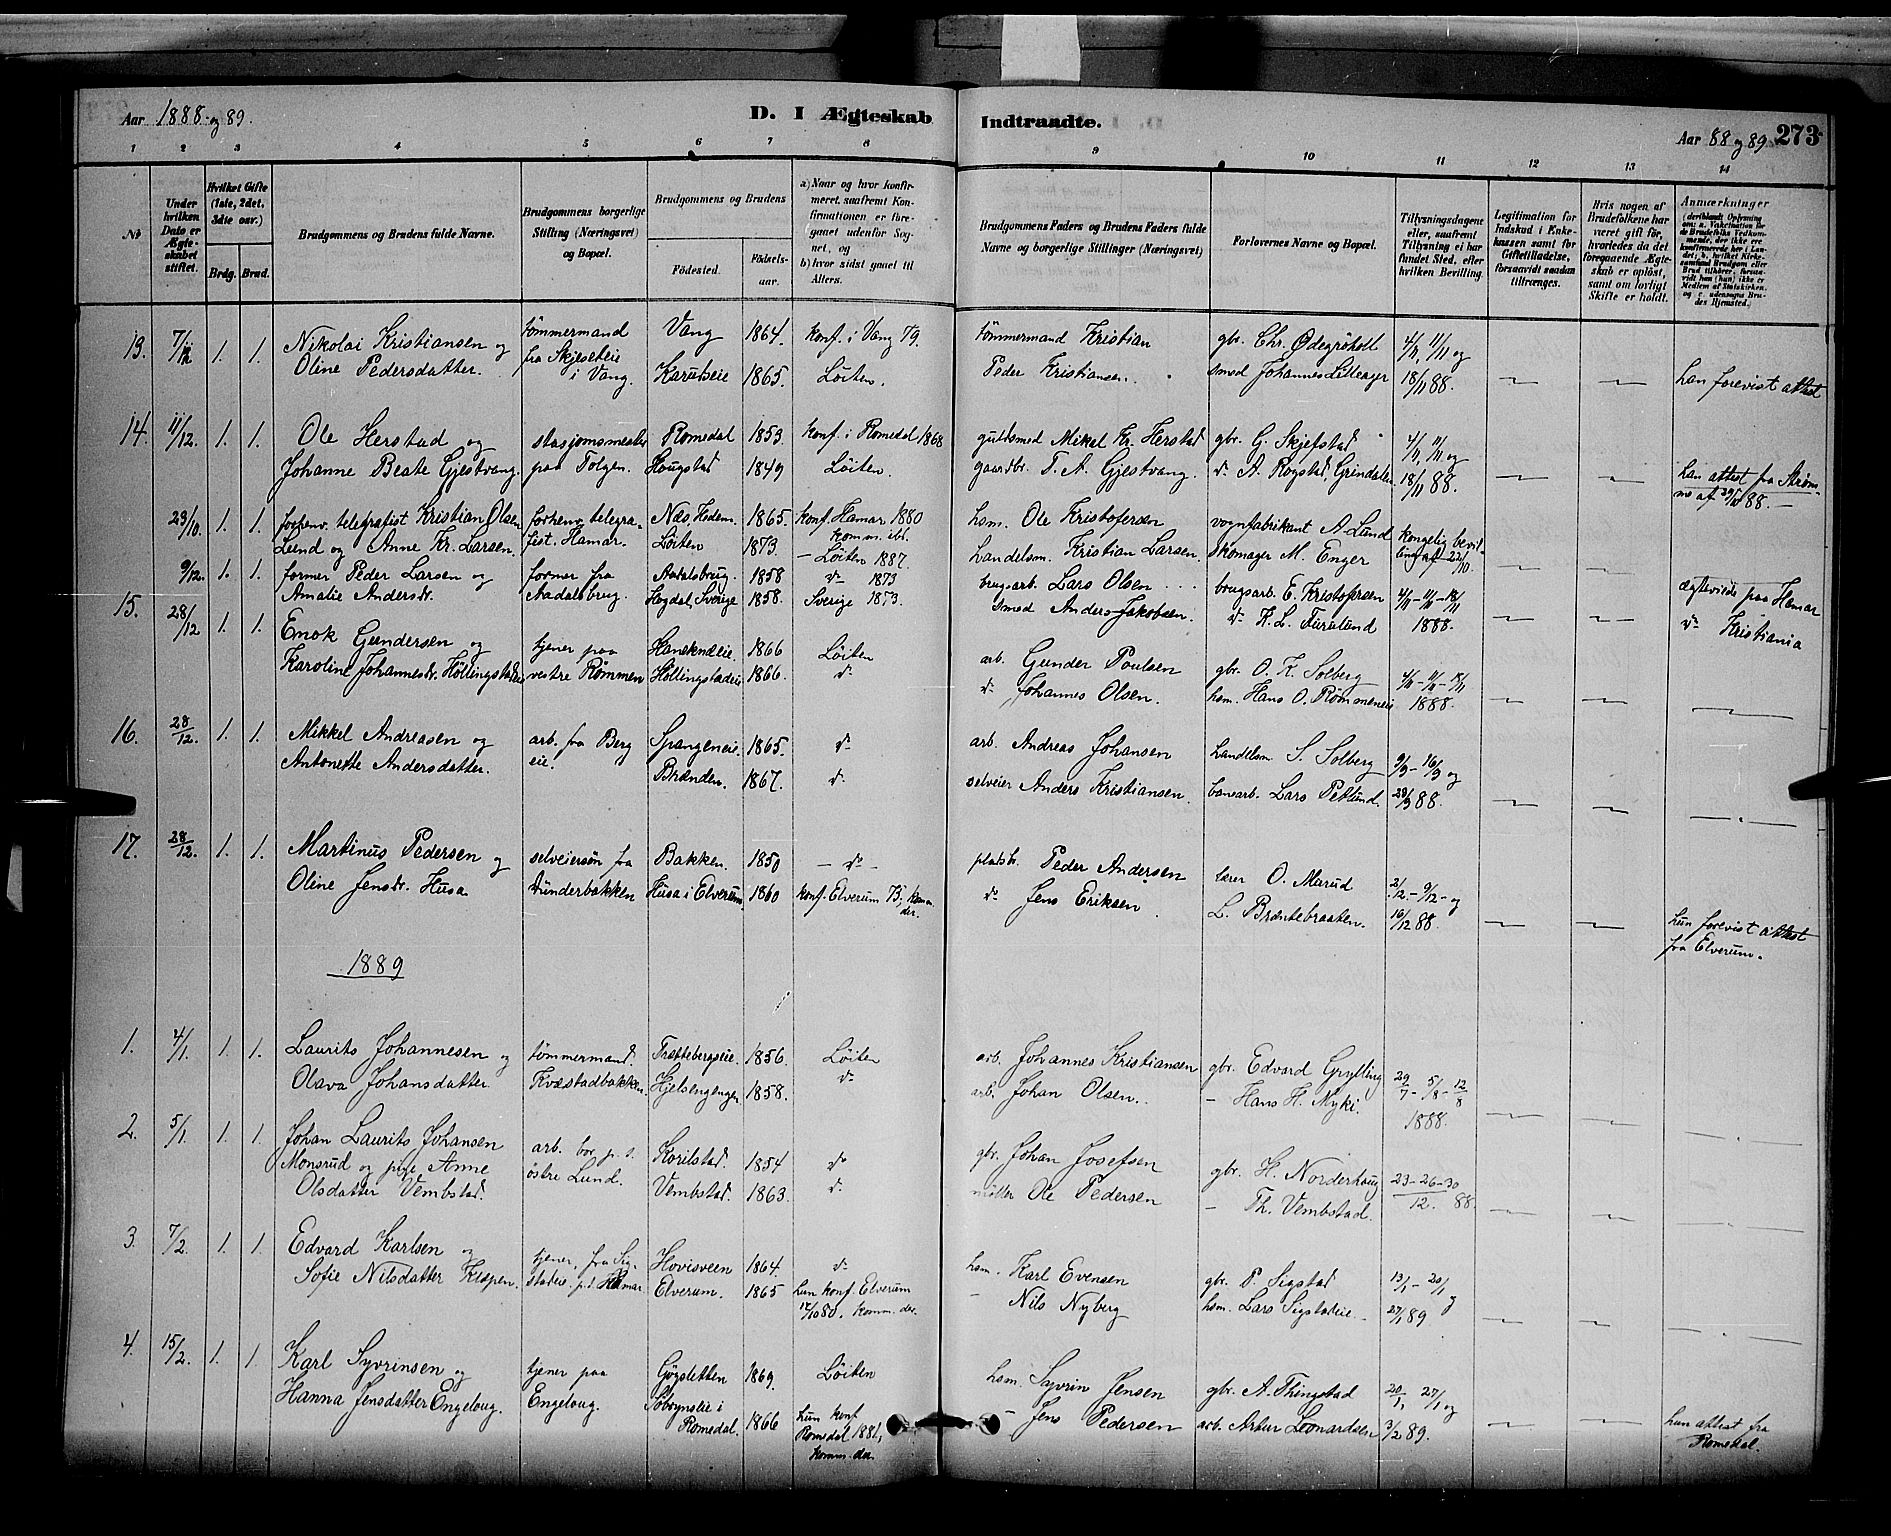 Aar 1888 og 89. D. I Ægteskab Indtraadte. Aar 88 og 89 273
1 2 3 4 5 6 7 8 9 10 11 12 13 14
No
Under hvilken Dato er Ægteskabet stiftet.
Hvilket Gifte (1ste, 2det, 3die osv.)
Brdg. Brud.
Brudgommens og Brudens fulde Navne.
Brudgommens borgerlige Stilling (Næringsvei) og Bopæl.
Brudgommens og Brudens
Födested. Födselsaar.
a) Naar og hvor konfirmeret, saafremt Konfirmationen er foregaaet udenfor Sognet, og
b) hvor sidst gaaet til Alters.
Brudgommens Faders og Brudens Faders fulde Navne og borgerlige Stillinger (Næringsvei)
Forlovernes Navne og Bopæl.
Tillysningsdagene eller, saafremt Tillysning ei har fundet Sted, efter hvilken Bevilling.
Legitimation for Indskud i Enkekassen samt for Giftetilladelse, forsaavidt saadan tiltrænges.
Hvis nogen af Brudefolkene har været gift før, hvorledes da det foregaaende Ægteskab er oplöst, samt om lovligt Skifte er holdt.
Anmærkninger
13. 1. 1. Nikolai Kristiansen og tömmermand Vang 1864. konf. i Vang 79. tömmermand Kristian gbr. Chr. Ødegröholt 4/11, 11/11 og
Oline Pedersdatter. fra Skjeseteie i Vang. Karutseie 1865. Löiten. Peder Kristiansen. smed Johannes Lilleager 18/11 88. han forevist attest
14. 11/12. 1. 1. Ole Herstad og stasjonsmester Romedal 1853. konf. i Romedal 1868 guldsmed Mikal Kr. Herstad gbr. G. Skjefstad 4/11, 11/11 og
Johanne Beate Gjestvang. paa Tolgen. Hougstad 1849 Löiten. gaardbr. T. A. Gjestvang d° A. Rogstad, Grindalen 18/11 88. han attest fra Strömmo af 29/10 88.
23/10. 1. 1. forhenv. telegrafist Kristian Olsen forhenv. telegra- Næs, Hedem. 1865. konf. Hamar 1880 hsm. Ole Kristofersen vognfabrikant A. Lund kongelig bevil-
Lund og Anne Kr. Larsen. fist. Hamar. Löiten 1873. komm. ibd. – Löiten 1887. Handelsm. Kristian Larsen skomager M. Enger ling af 23/10. ægteviede paa Hamar
9/12. 1. 1. former Peder Larsen og former fra Aadalsbrug. 1858 d° 1873 brugsarb. Lars Olsen brugsarb. E. Kristofersen 4/11 – 11/11 – 18/11
Amalie Andersdr. Aadalsbrug. Hogdal, Sverige 1858. Sverige 1873. smed Anders Jakobsen. d° K. L. Furulund 1888. d° Kristiania
15. 28/12 1. 1. Enok Gundersen og tjener paa Haneknæeie. 1866 Löiten arb. Gunder Poulsen gbr. O. K. Solberg 4/11 – 11/11 – 18/11
Karoline Johannesdr. Höllingstadeie vestre Römmen Höllingstadeie 1866. d° d° Johannes Olsen. hsm. Hans O. Römmeneie 1888.
16. 28/12. 1. 1. Mikkel Andreasen og arb. fra Berg Spangeneie. 1865. d° arb. Andreas Johansen handelsm. S. Solberg 9/9 – 16/9 og
Antonette Andersdatter. eie. Brænden. 1867. d° selveier Anders Kristiansen. banearb. Lars Petlund. 23/9 88.
17. 28/12. 1. 1. Martinus Pedersen og selveiersön fra Bakken. 1850 – d° – pladsbr. Peder Andersen lærer O. Marud 2/12 – 9/12 – og
Oline Jensdr. Husa Dünderbakken Husa i Elverum 1860 konf. Elverum 75, komm. der. d° Jens Eriksen. L. Bræntebraaten. 16/12 88. hun forevist attest fra Elverum.
1889
1. 4/1. 1. 1. Laurits Johannesen og tömmermand. Trættebergseie. 1856. Löiten arb. Johannes Kristiansen gbr. Edvard Grylling 29/7 – 5/8 – 12/8
Olava Johansdatter Kvæstadbakken. Hjelsengenger 1858. d° arb. Johan Olsen. – Hans H. Myki. 1888.
2. 5/1. 1. 1. Johan Laurits Johansen arb. bor p. t. Korilstad. 1854 d° gbr. Johan Josefsen gbr. H. Norderhoug 23–26–30
Monsrud og pige Anne östre Lund.
Olsdatter Vembstad. Vembstad. 1863. d° möller Ole Pedersen – Th. Vembstad. 12. 88.
3. 7/2. 1. 1. Edvard Karlsen og tjener, fra Sig- Hovisveen 1864. d° hsm. Karl Evensen gbr. P. Sigstad 13/1 – 20/1 og
Sofie Nilsdatter Kispen. stadeie, p.t. Hamar Elverum. 1865 hun konf. Elverum 17/10 80. komm. der. – Nils Nyberg hsm. Lars Sigstadeie. 27/1 89.
4. 15/2. 1. 1. Karl Syvrinsen og tjener paa Gögsletten 1869. Löiten hsm. Syvrin Jensen gbr. A. Thingstad 20/1, 27/1 og
Hanna Jensdatter Engeloug. Engeloug. i Romedal. 1866 hun konf Romedal 1881, komm. der. – Jens Pedersen arb. Artur Leonardsen 3/2 89. hun attest fra Romedal.